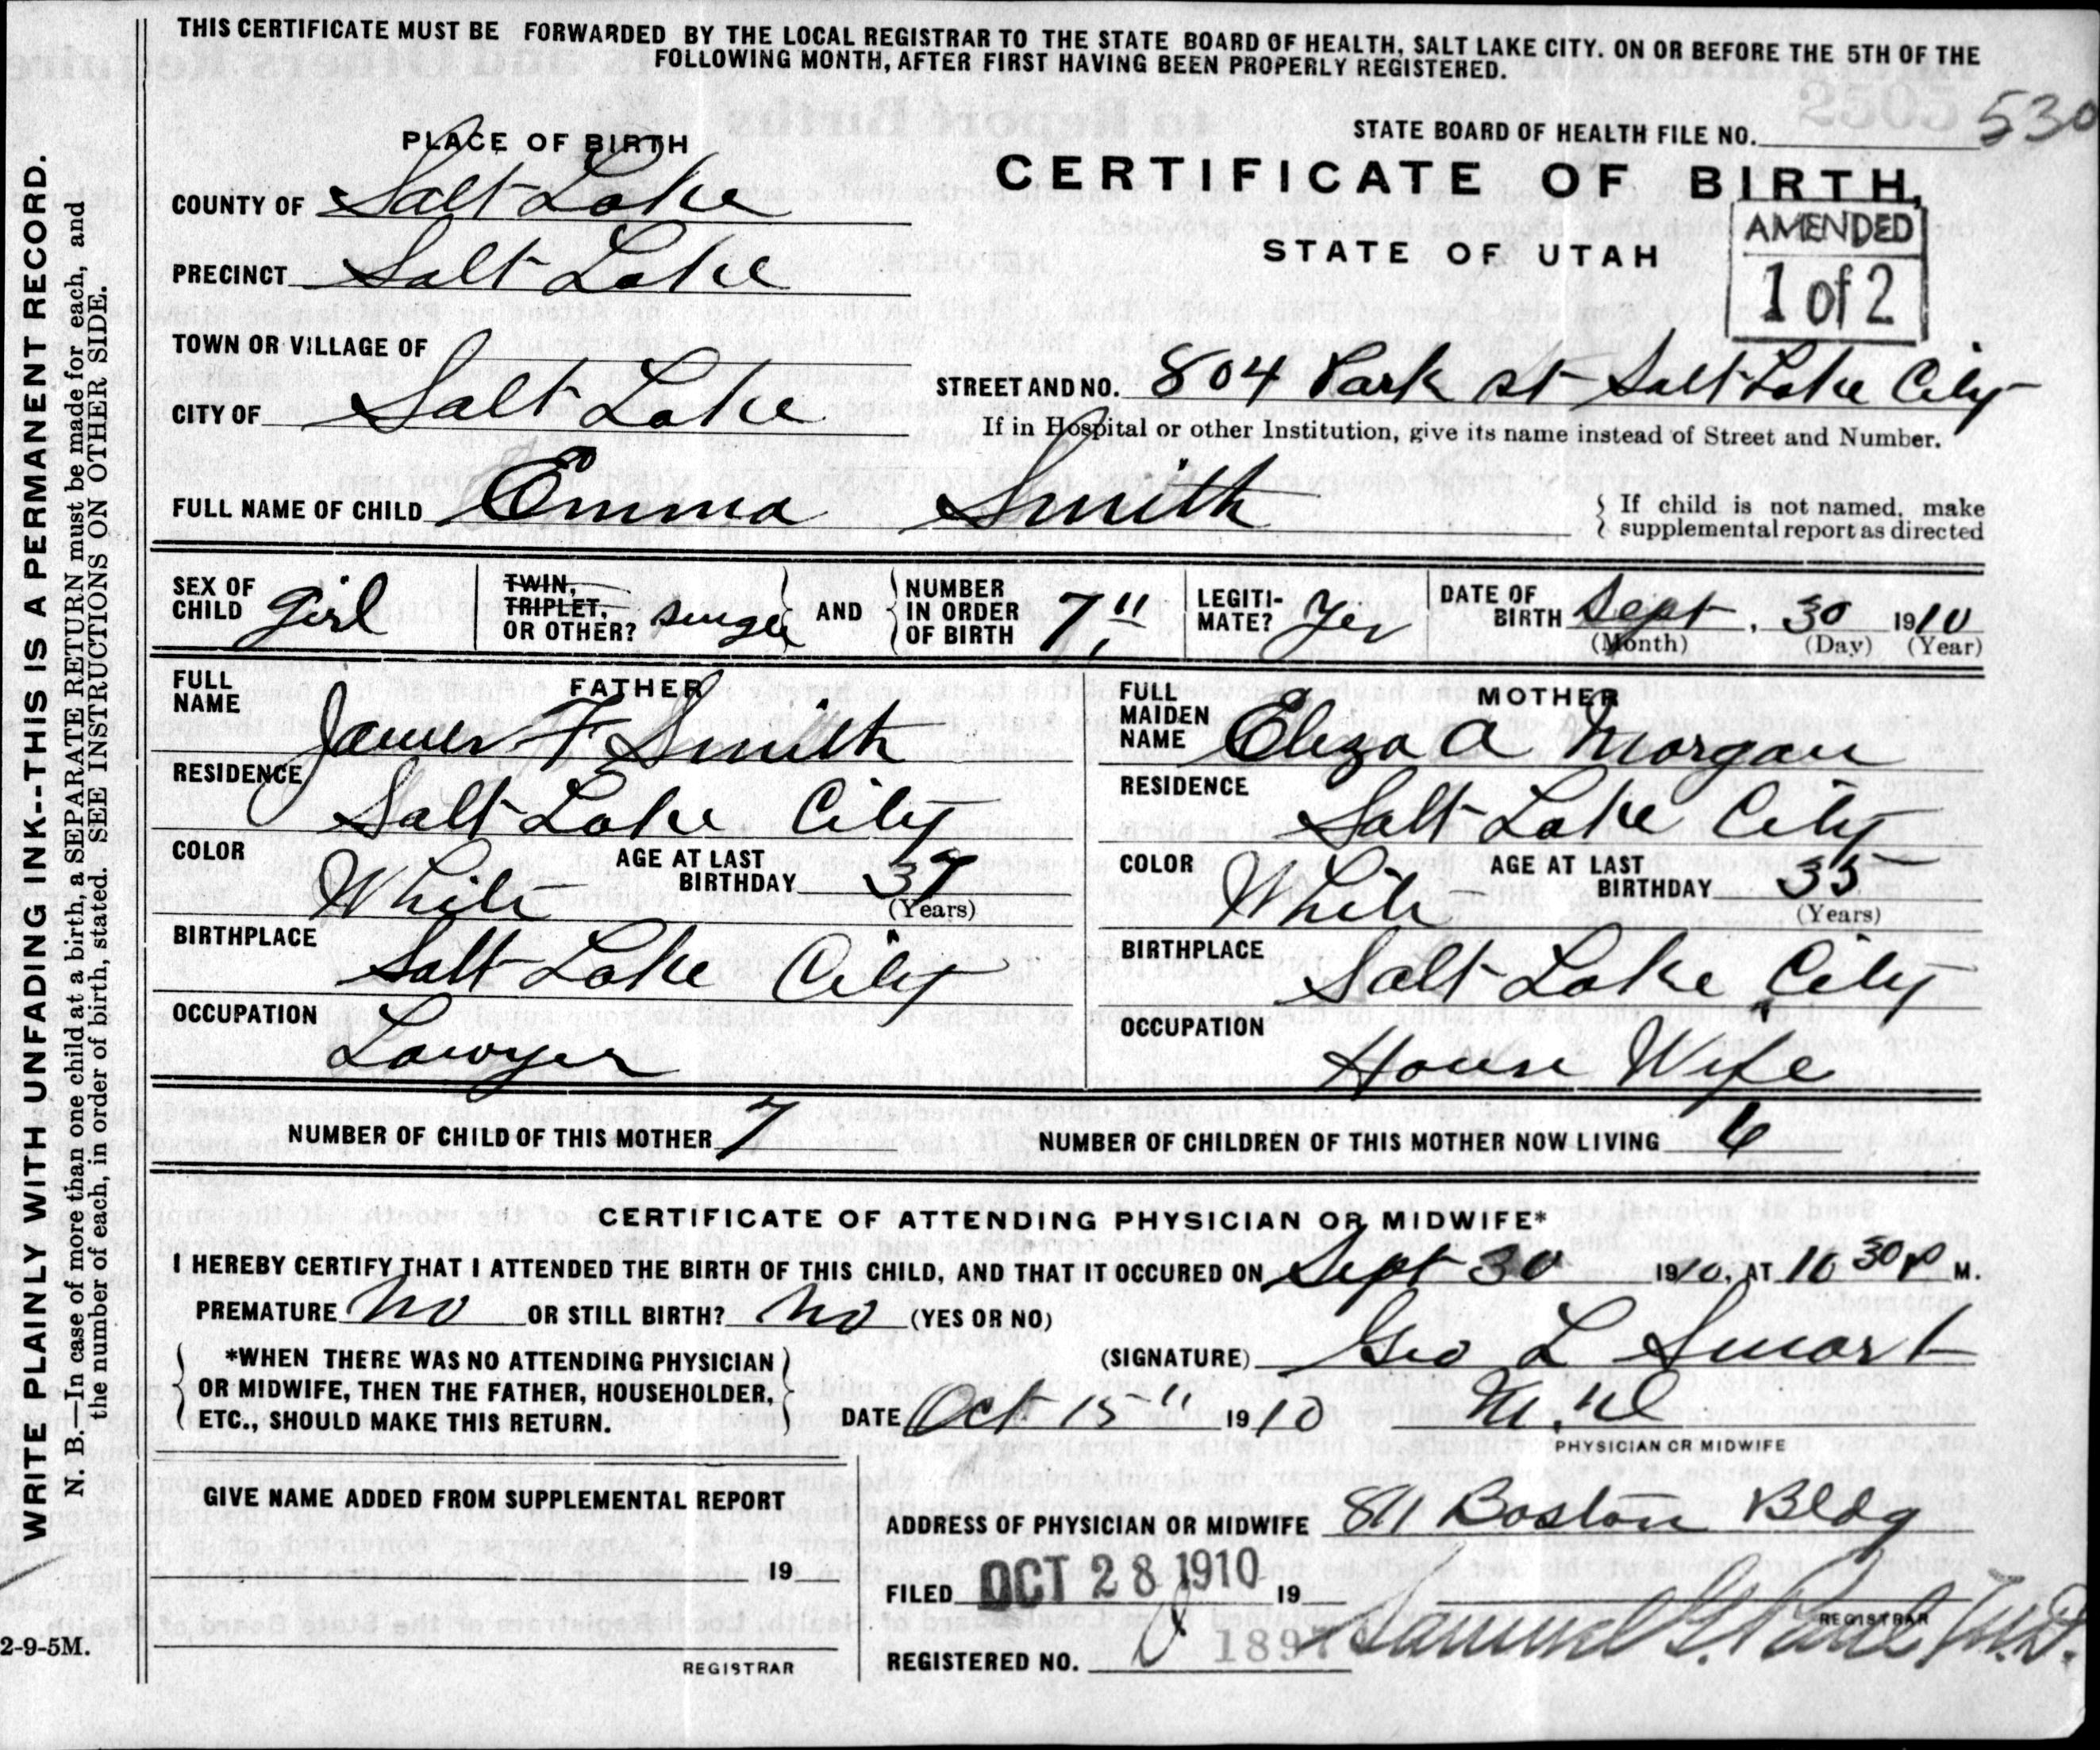 THIS CERTIFICATE MUST BE FORWARDED BY THE LOCAL REGISTRAR TO THE STATE BOARD OF HEALTH, SALT LAKE CITY. ON OR BEFORE THE 5TH OF THE
FOLLOWING MONTH, AFTER FIRST HAVING BEEN PROPERLY REGISTERED.
WRITE PLAINLY WITH UNFADING INK--THIS IS A PERMANENT RECORD.
N. B.—In case of more than one child at a birth, a SEPARATE RETURN must be made for each, and
the number of each, in order of birth, stated. SEE INSTRUCTIONS ON OTHER SIDE.
PLACE OF BIRTH
STATE BOARD OF HEALTH FILE NO. 530
CERTIFICATE OF BIRTH,
STATE OF UTAH
AMENDED
1 of 2
COUNTY OF Salt Lake
PRECINCT Salt Lake
TOWN OR VILLAGE OF
CITY OF Salt Lake
STREET AND NO. 804 Park st Salt Lake City
If in Hospital or other Institution, give its name instead of Street and Number.
FULL NAME OF CHILD Emma Smith
If child is not named, make
supplemental report as directed
SEX OF CHILD girl
TWIN, TRIPLET, OR OTHER? single AND NUMBER IN ORDER OF BIRTH 7"
LEGITIMATE? Yes
DATE OF BIRTH Sept. 30 1910
(Month) (Day) (Year)
FATHER
FULL NAME James F Smith
RESIDENCE
Salt Lake City
COLOR White AGE AT LAST BIRTHDAY 37
(Years)
BIRTHPLACE
Salt Lake City
OCCUPATION
Lawyer
MOTHER
FULL MAIDEN NAME Eliza A Morgan
RESIDENCE
Salt Lake City
COLOR White AGE AT LAST BIRTHDAY 35
(Years)
BIRTHPLACE
Salt Lake City
OCCUPATION
House Wife
NUMBER OF CHILD OF THIS MOTHER 7 NUMBER OF CHILDREN OF THIS MOTHER NOW LIVING 6
CERTIFICATE OF ATTENDING PHYSICIAN OR MIDWIFE*
I HEREBY CERTIFY THAT I ATTENDED THE BIRTH OF THIS CHILD, AND THAT IT OCCURED ON Sept 30 1910, AT 10 30 P M.
PREMATURE No OR STILL BIRTH? No (YES OR NO)
*WHEN THERE WAS NO ATTENDING PHYSICIAN
OR MIDWIFE, THEN THE FATHER, HOUSEHOLDER,
ETC., SHOULD MAKE THIS RETURN.
(SIGNATURE) Geo L Smart
DATE Oct 15" 1910 M.D
PHYSICIAN OR MIDWIFE
GIVE NAME ADDED FROM SUPPLEMENTAL REPORT
19
REGISTRAR
ADDRESS OF PHYSICIAN OR MIDWIFE 811 Boston Bldg
FILED OCT 28 1910 19
REGISTRAR
REGISTERED NO. 1897 Samuel G. Paul, M.D.
2-9-5M.